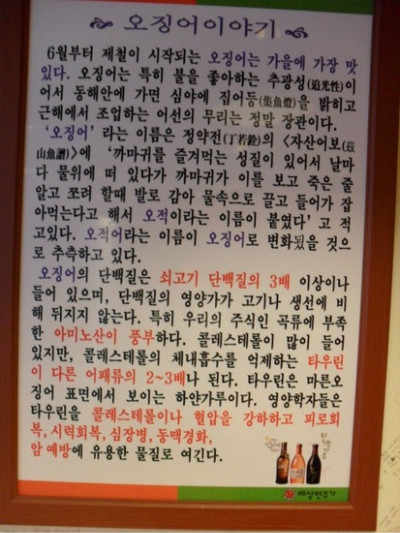 오징어이야기
6월부터 제철이 시작되는 오징어는 가을에 가장 맛
있다. 오징어는 특히 불을 좋아하는 추광성(追光性)이
어서 동해안에 가면 심야에 집어등(集魚燈)을 밝히고
근해에서 조업하는 어선의 무리는 정말 장관이다.
'오징어' 라는 이름은 정약전(丁若銓)의 <자산어보(玆
山魚譜)>에 '까마귀를 즐겨먹는 성질이 있어서 날마
다 물위에 떠 있다가 까마귀가 이를 보고 죽은 줄
알고 쪼려 할때 발로 감아 물속으로 끌고 들어가 잡
아먹는다고 해서 오적이라는 이름이 붙였다' 고 적
고있다. 오적어라는 이름이 오징어로 변화됬을 것으
로 추측하고 있다.
오징어의 단백질은 쇠고기 단백질의 3배 이상이나
들어 있으며, 단백질의 영양가가 고기나 생선에 비
해 뒤지지 않는다. 특히 우리의 주식인 곡류에 부족
한 아미노산이 풍부하다. 콜레스테롤이 많이 들어
있지만, 콜레스테롤의 체내흡수를 억제하는 타우린
이 다른 어패류의 2~3배나 된다. 타우린은 마른오
징어 표면에서 보이는 하얀가루이다. 영양학자들은
타우린을 콜레스테롤이나 혈압을 강하하고 피로회
복, 시력회복, 심장병, 동맥경화,
암 예방에 유용한 물질로 여긴다.
배상면주가